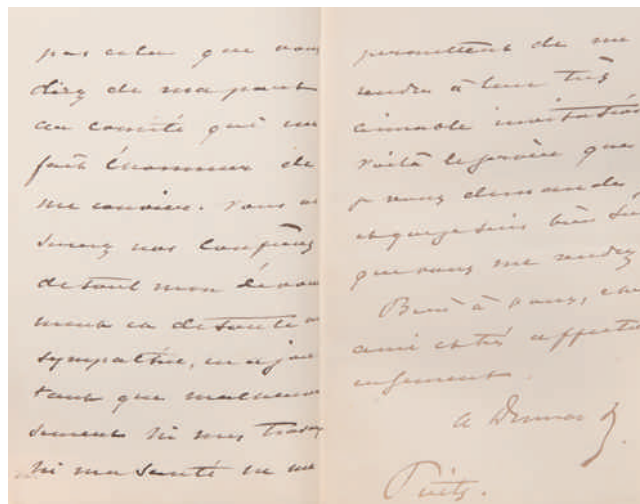 pas cela que vous
direz de ma part
au comité qui me
fait l'honneur de
me convier. Vous as
surerez nos confrères
de tout mon dévoue
ment et de toute ma
sympathie, en ajou
tant que malheureu
sement ni mes travaux
ni ma santé ne me
permettent de me
rendre à leur très
aimable invitation
voilà le service que
je vous demande,
et que je suis bien sûr
que vous me rendrez
Bien à vous, cher
ami et très affectu
eusement.
A Dumas f.
Puits.